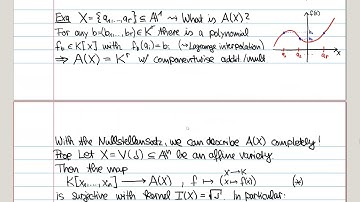 Exa X = {a₁,...,aᵣ} ⊆ A¹ ⇝ What is A(X)?
For any b=(b₁,...,bᵣ)∈Kʳ there is a polynomial
f_b ∈ K[x] with f_b(aᵢ) = bᵢ (⇝ Lagrange interpolation)
⇒ A(X) = Kʳ w/ componentwise addit./mult.
With the Nullstellensatz, we can describe A(X) completely!
Prop Let X = V(J) ⊆ Aⁿ be an affine variety.
Then the map
K[x₁,...,xₙ] → A(X), f ↦ (X→K x↦f(x)) (*)
is surjective with kernel I(X) = √J. In particular: